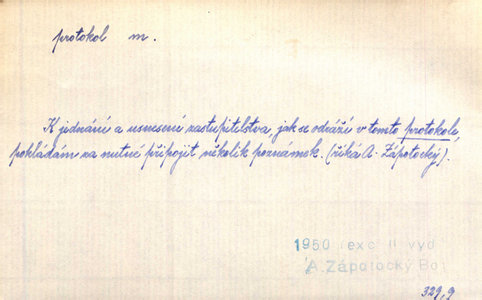 protokol m.
K jednání a usnesení zastupitelstva, jak se odráží v tomto protokole,
pokládám za nutné připojit několik poznámek. (říká A. Zápotocký).
1950 exc II vyd
A. Zápotocký Boj
329,9